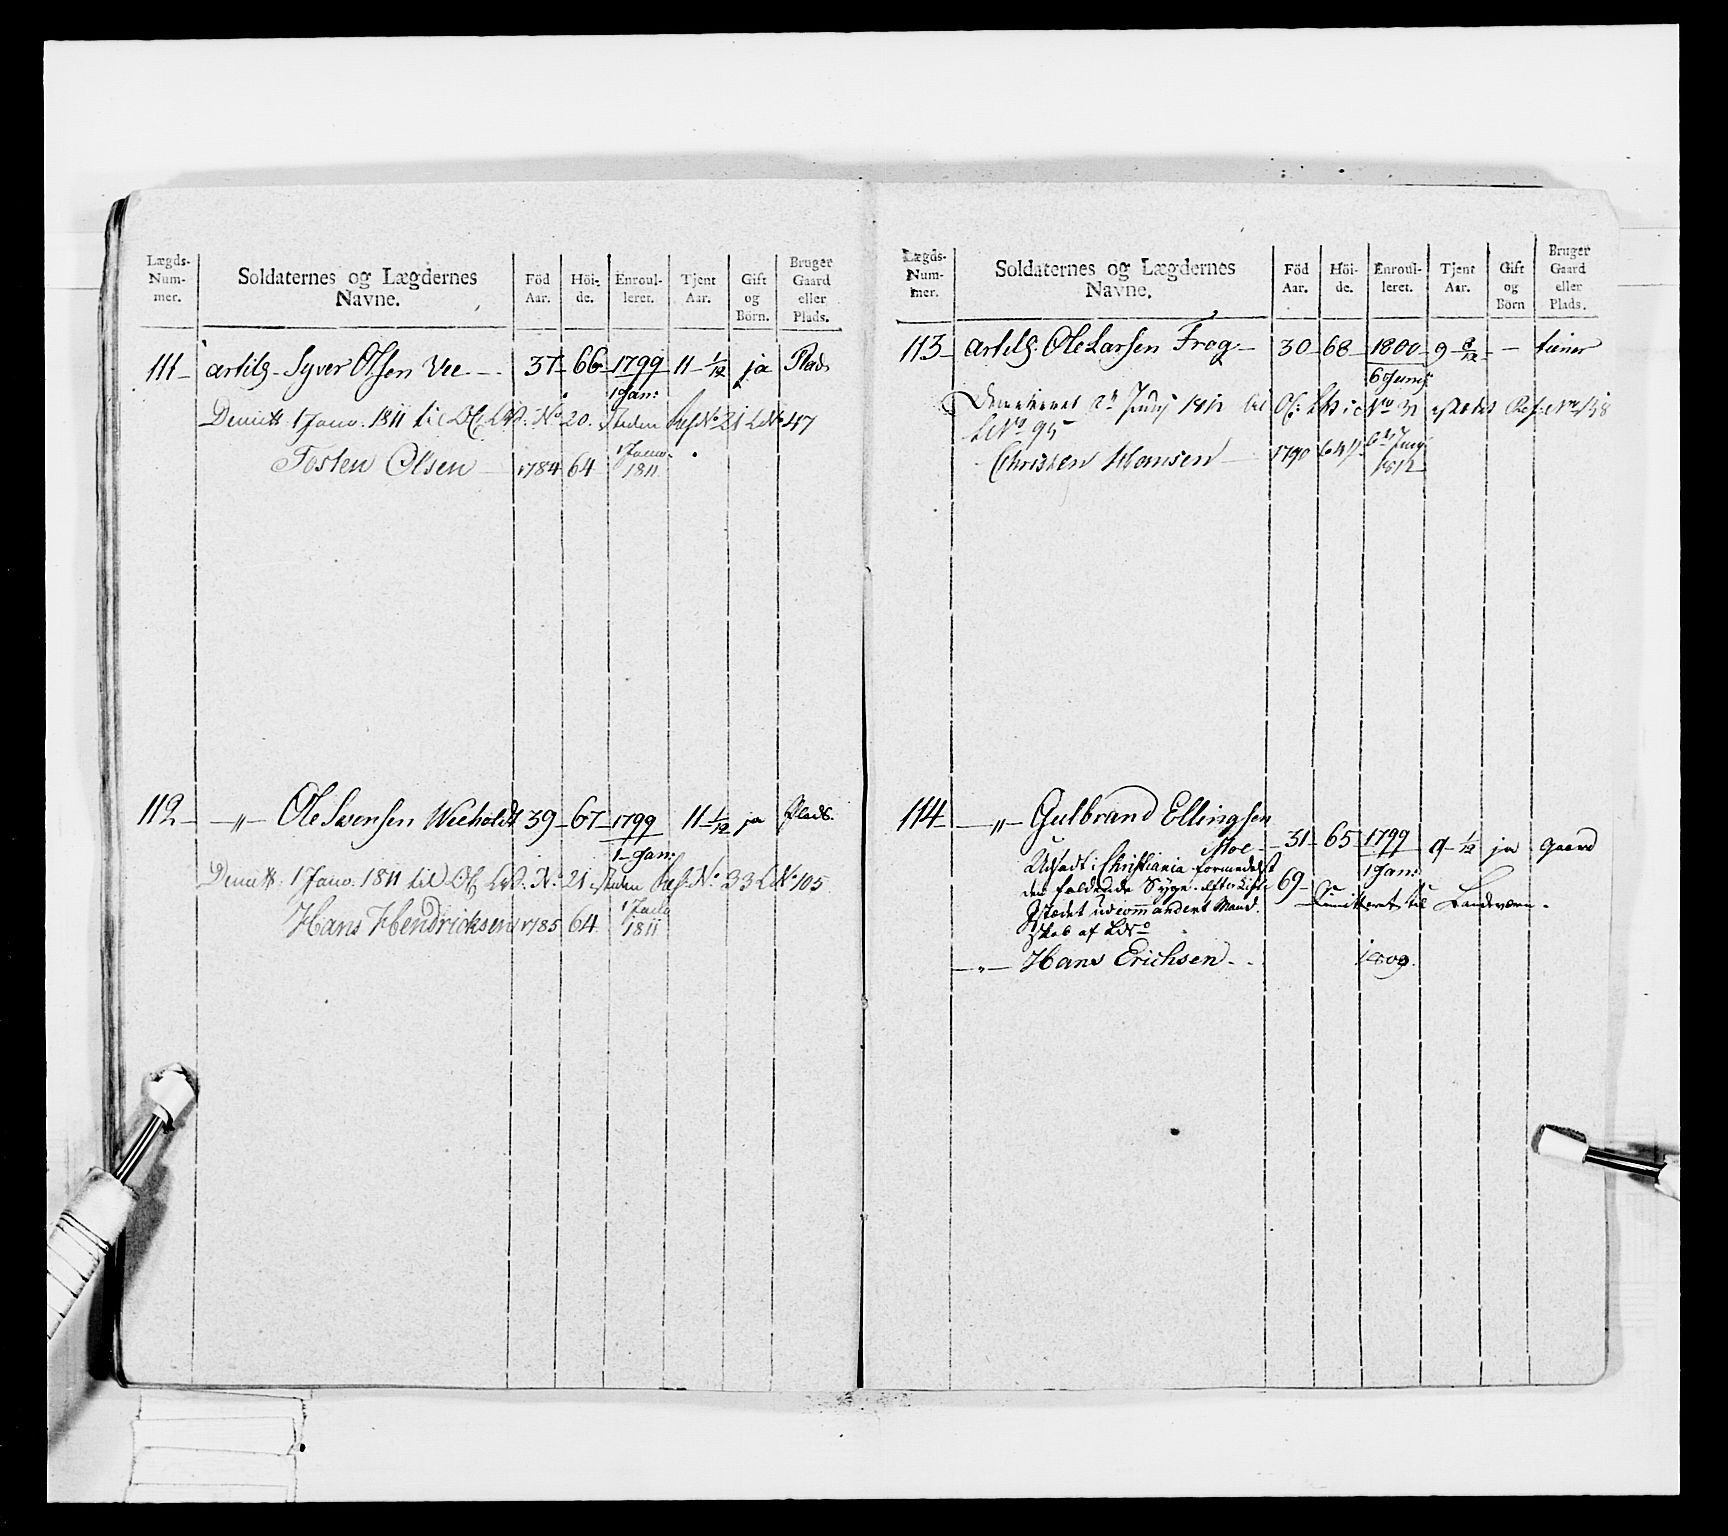 Lægds-Num-mer. Soldaternes og Lægdernes Navne. Föd Aar. Höi-de. Enroul-leret. Tjent Aar. Gift og Börn. Bruger Gaard eller Plads.
111 artilg. Syver Olsen Vee 37 66 1799 11 1/12 ja Plads
1 Jan:
Demitt. 1 Janv. 1811 til Of. No 20. Steden No 21 LNo 47
Tosten Olsen 1784 64 1 Janv. 1811
112 -"- Ole Svensen Weeholdt 39 67 1799 11 1/12 ja Plads.
1 Jan:
Demitt. 1 Janv. 1811 til Of. No. 21. Steden No. 33 LNo 105
Hans Hendricksen 1785 64 1 Janv 1811
Lægds-Num-mer. Soldaternes og Lægdernes Navne. Föd Aar. Höi-de. Enroul-leret. Tjent Aar. Gift og Börn Bruger Gaard eller Plads.
113 artilg. Ole Larsen Frog 30 68 1800 9 8/12 - tiener
6 Juni
1812 til No
LNo 95
Christen Hansen 1790 64 1812
114 -"- Gulbrand Ellingsen
Moe 31 65 1799 9 1/12 ja gaard
Udsadt i Christiania formedelst 1 Jan:
den faldende Syge. 69 til Landeværn.
udcommandert Mand
skab af LNo
-"- Hans Erichsen 1809.